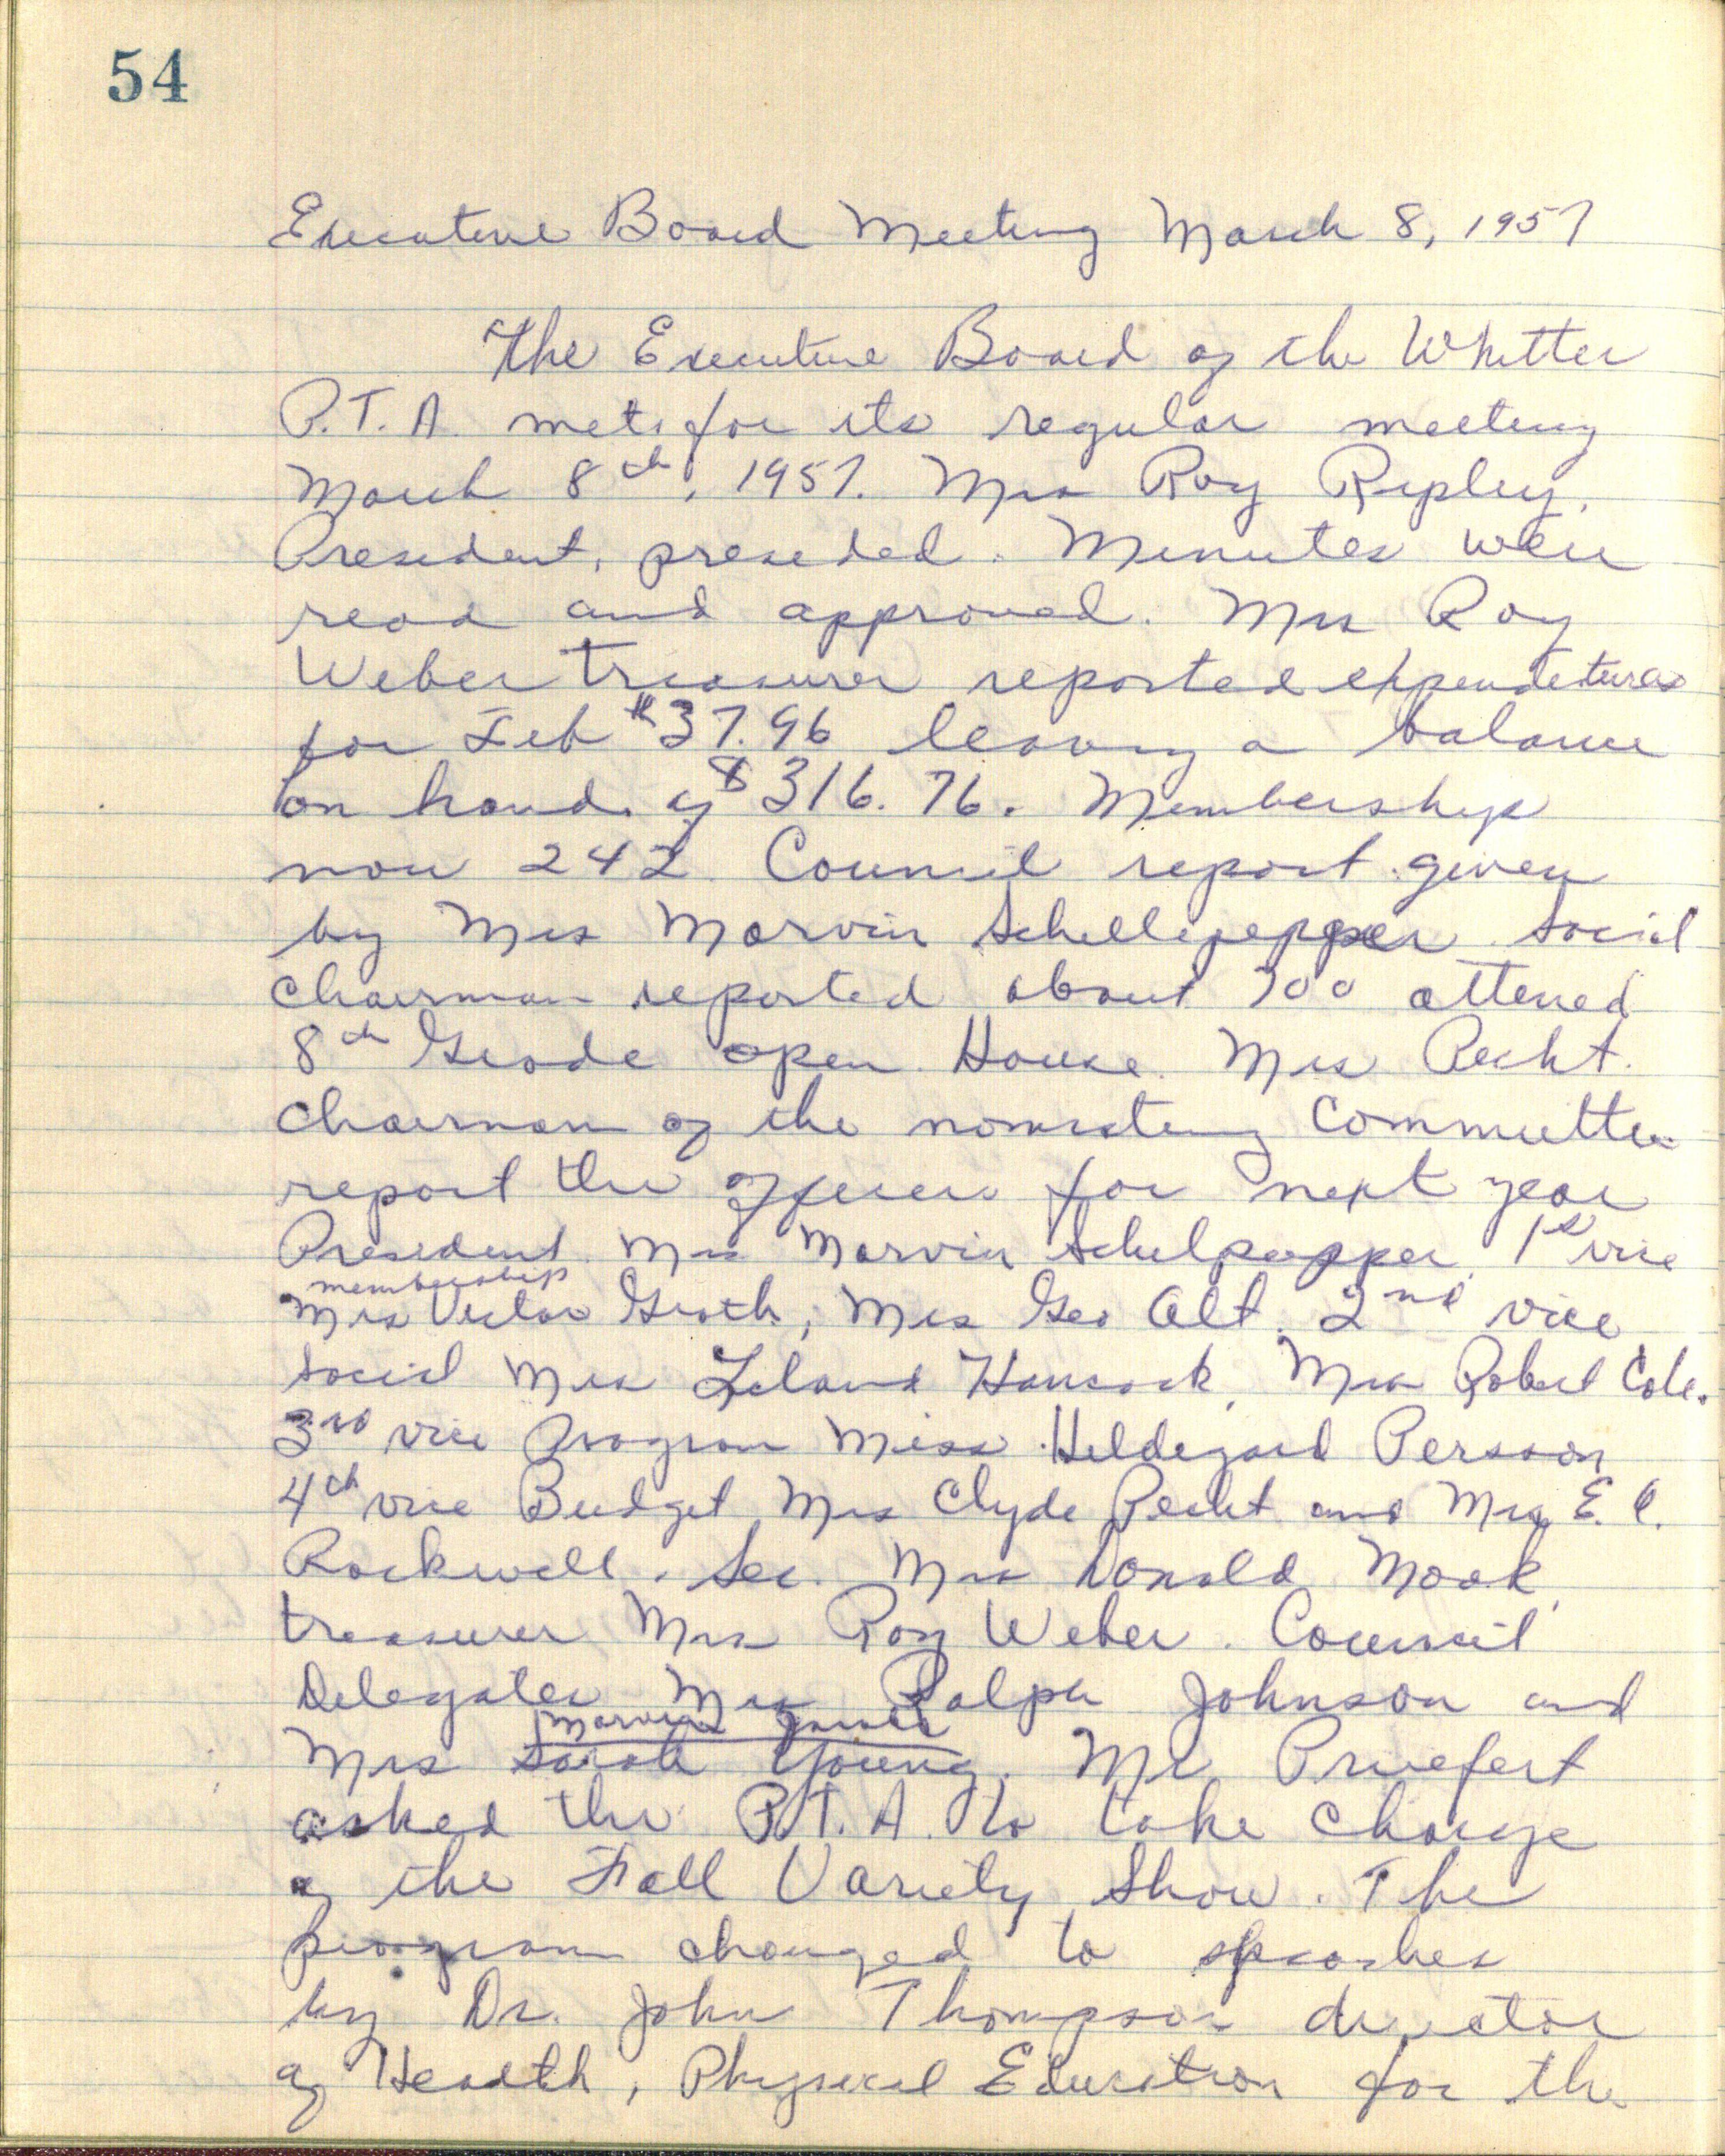 54
Executive Board Meeting March 8, 1957
The Executive Board of the Whittier
P.T.A. met for its regular meeting
March 8th, 1957. Mrs Roy Ripley,
President, presided. Minutes were
read and approved. Mrs Roy
Weber treasurer reported expenditures
for Feb $37.96 leaving a balance
on hand of $316.76. Membership
now 242. Council report given
by Mrs Marvin Schellpepper. Social
chairman reported about 700 attened
8th Grade open House. Mrs Pecht.
chairman of the nominating Committee
report the officers for next year
President Mrs Marvin Schelpepper, 1st vice
membership
Mrs Victor Groth, Mrs Geo Alt. 2nd vice
social Mrs Leland Hancock, Mrs Robert Cole.
3rd vice Program Miss Hildegard Person
4th vice Budget Mrs Clyde Pecht and Mrs E. C.
Rockwell. Sec. Mrs Donald Mook,
treasurer Mrs Roy Weber. Council
Delegates Mrs Ralph Johnson and
Marvin
Mrs Sarah Young. Mr Pruefert
asked the P.T.A. to take charge
of the Fall Variety Show. The
program changed to
by Dr. John Thompson director
of Health, Physical Education for the